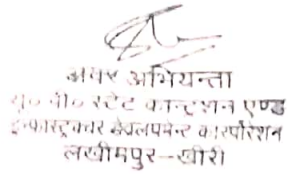 अवर अभियन्ता
यू० पी० स्टेट कान्ट्रक्शन एण्ड
इन्फ्रास्ट्रक्चर डेवलपमेन्ट कारपोरेशन
लखीमपुर-खीरी